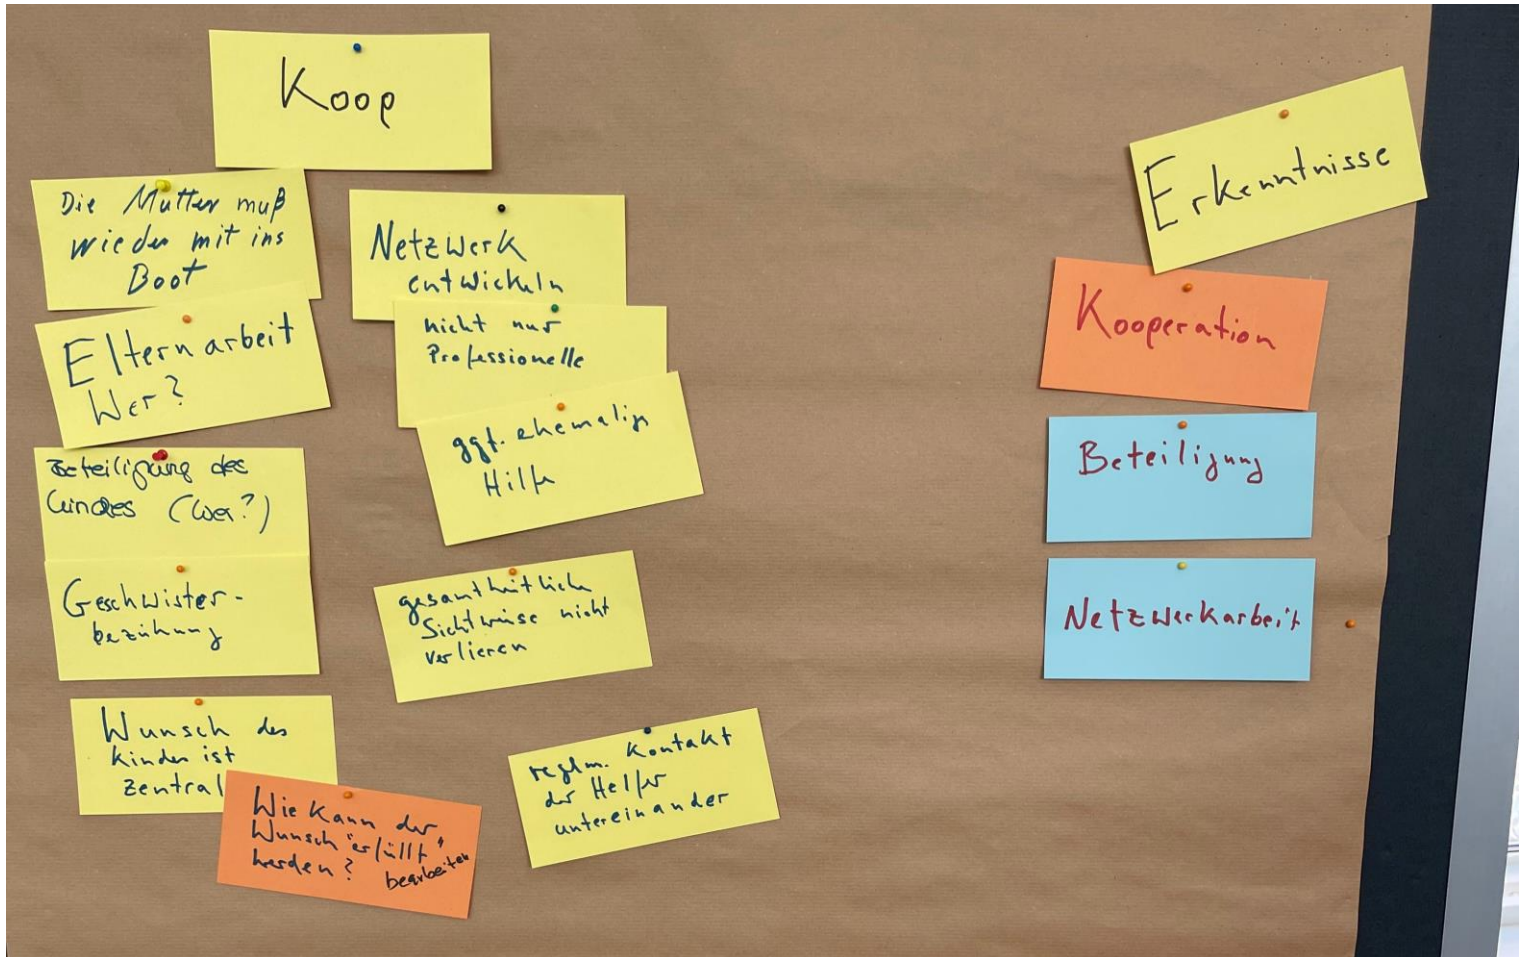 Koop
Die Mutter muß
wieder mit ins
Boot
Elternarbeit
Wer?
Beteiligung des
Kindes (Wer?)
Geschwister-
beziehung
Wunsch des
Kindes ist
zentral
Wie kann der
Wunsch "erfüllt"
werden? bearbeiten
Netzwerk
entwickeln
nicht nur
Professionelle
ggf. ehemalige
Hilfe
gesamtheitliche
Sichtweise nicht
verlieren
reglm. Kontakt
der Helfer
untereinander
Erkenntnisse
Kooperation
Beteiligung
Netzwerkarbeit